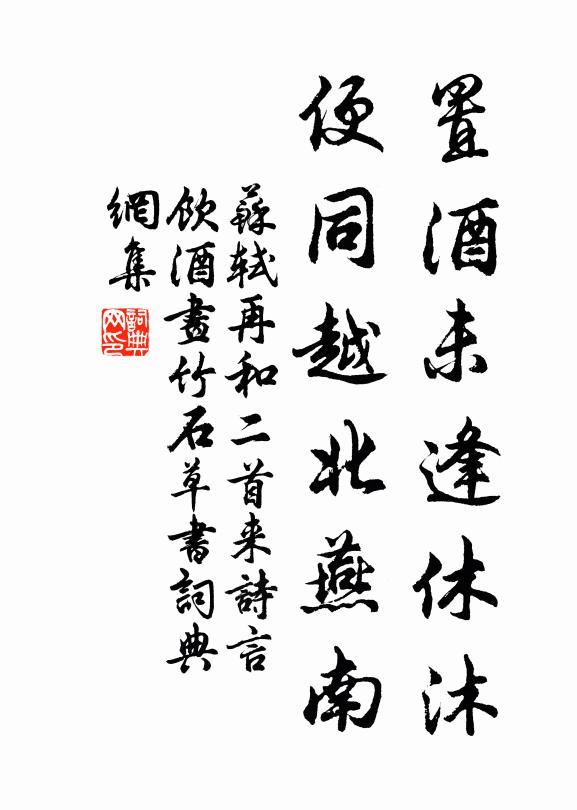 置酒未逢休沐
便同越北燕南
蘇軾再和二首来詩言
飲酒畫竹石草書詞典
網集
詞典
网印